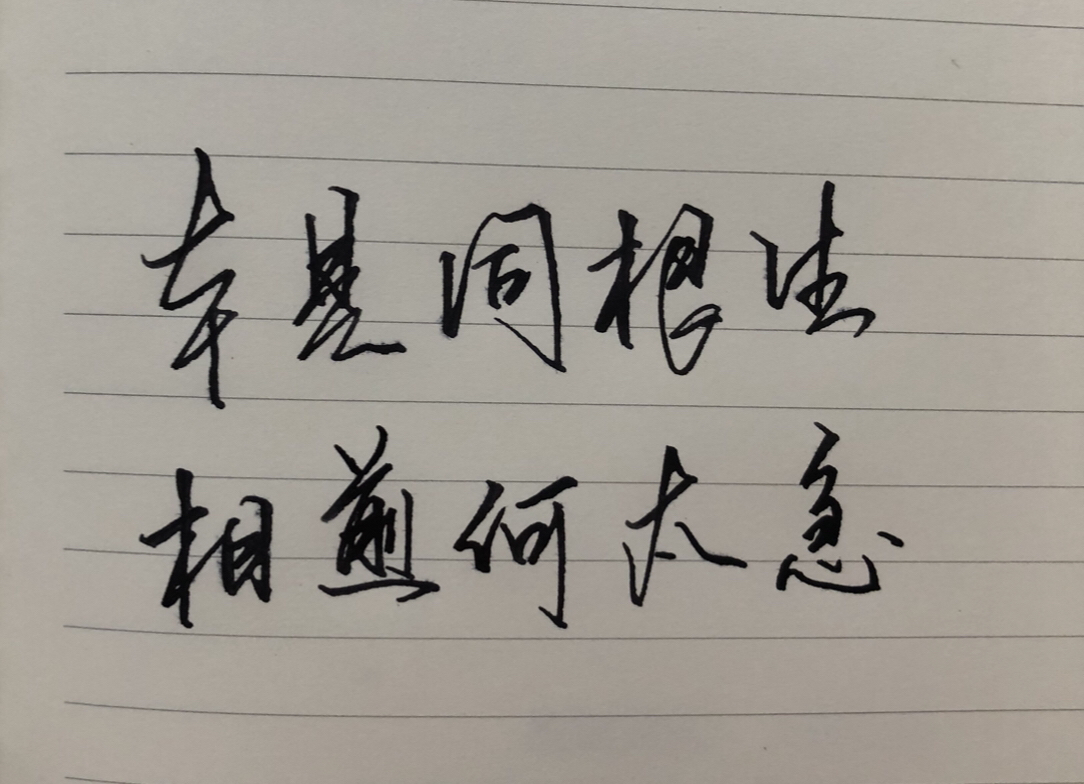 本是同根生
相煎何太急